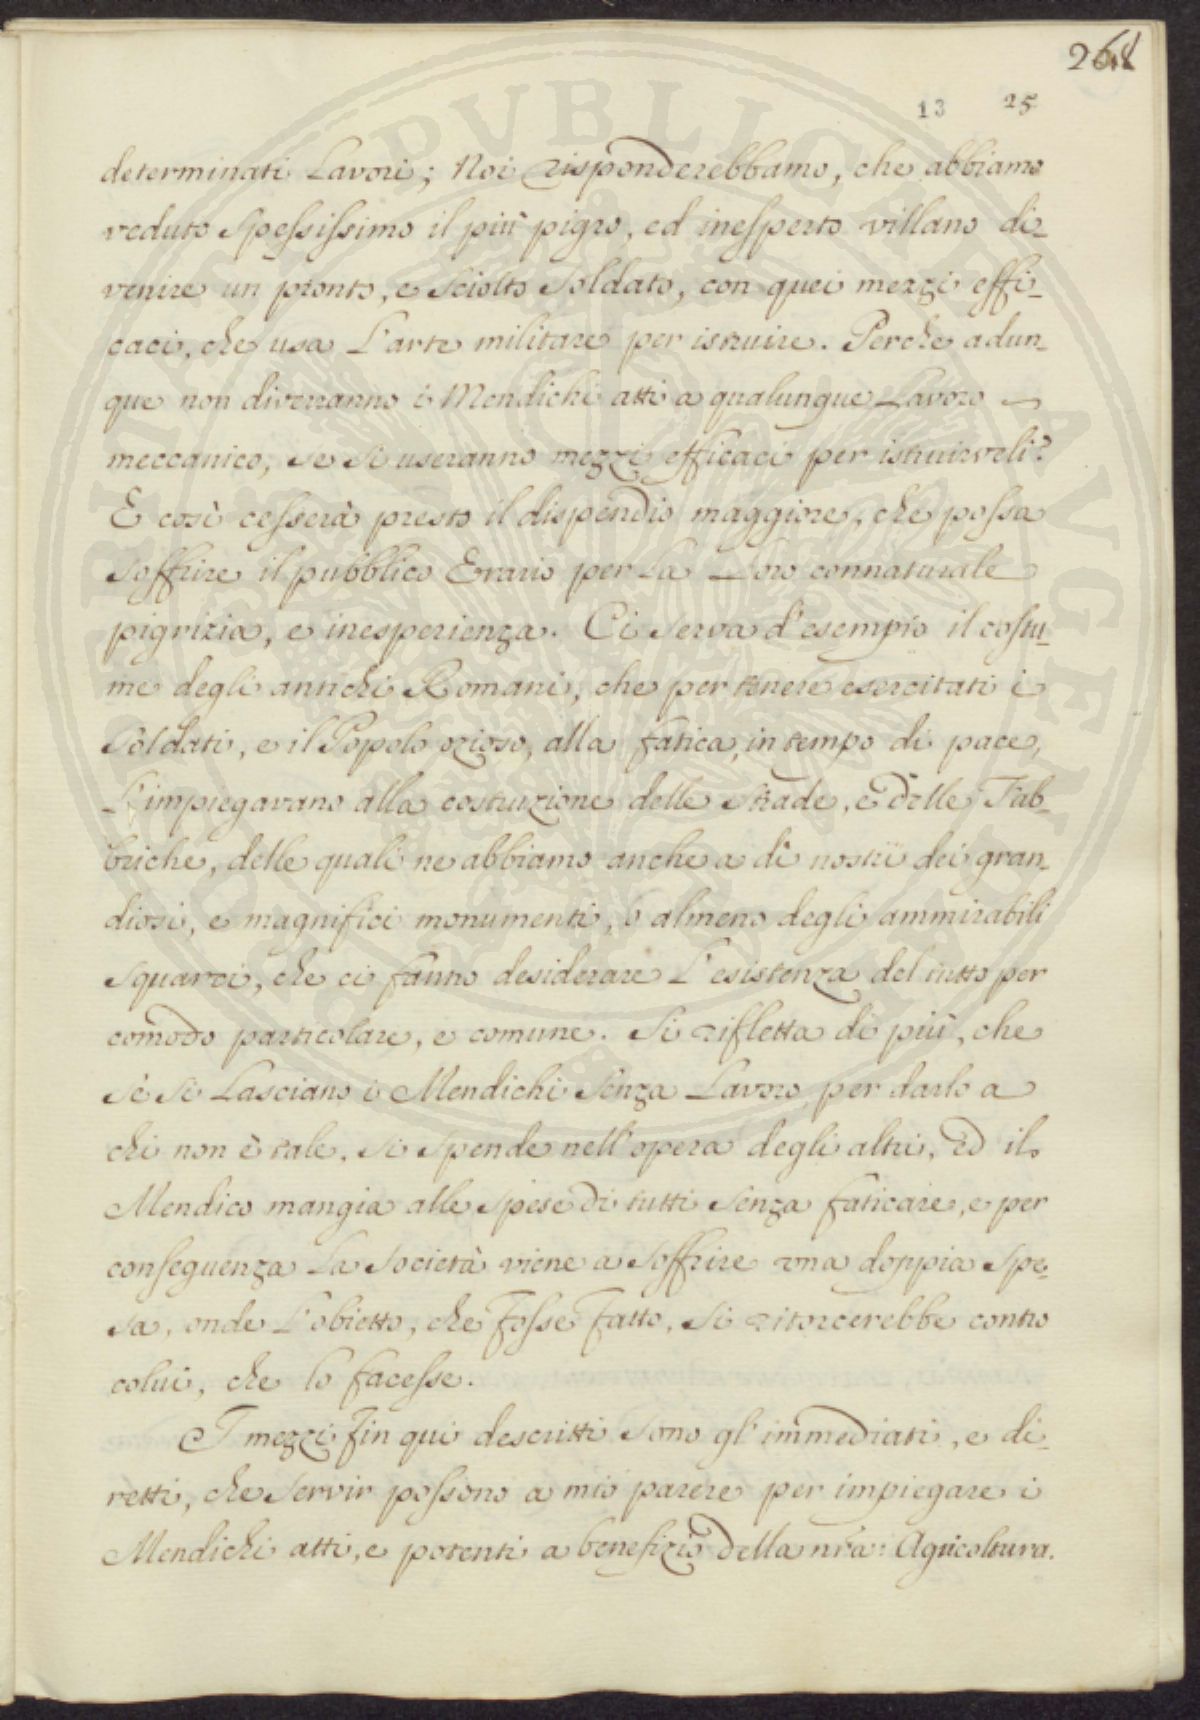 268
13 25
determinati Lavori; Noi risponderebbamo, che abbiamo
veduto spessissimo il più pigro, ed inesperto villano di-
venire un pronto, e sciolto soldato, con quei mezzi effi-
caci, che usa l'arte militare per istruire. Perche adun-
que non diverranno i Mendichi atti a qualunque Lavoro
meccanico, se si useranno mezzi efficaci per istruirveli?
E così cesserà presto il dispendio maggiore, che possa
soffrire il pubblico Erario per la Loro connaturale
pigrizia, e inesperienza. Ci serva d'esempio il costu-
me degli antichi Romani, che per tenere esercitati i
Soldati, e il Popolo ozioso, alla fatica, in tempo di pace,
L'impiegavano alla costruzione delle strade, e delle Fab-
briche, delle quali ne abbiamo anche a dì nostri dei gran-
diosi, e magnifici monumenti, o almeno degli ammirabili
squarci, che ci fanno desiderare l'esistenza del tutto per
comodo particolare, e comune. Si rifletta di più, che
sè si Lasciano i Mendichi senza Lavoro per darlo a
chi non è tale, si spende nell'opera degli altri, ed il
Mendico mangia alle spese di tutti senza faticare, e per
conseguenza la società viene a soffrire una doppia spe-
sa, onde l'obietto, che fosse fatto, si ritorcerebbe contro
colui, che lo facesse.
I mezzi fin qui descritti sono gl'immediati, e di-
retti, che servir possono a mio parere per impiegare i
Mendichi atti, e potenti a benefizio della nrã: Agricoltura.